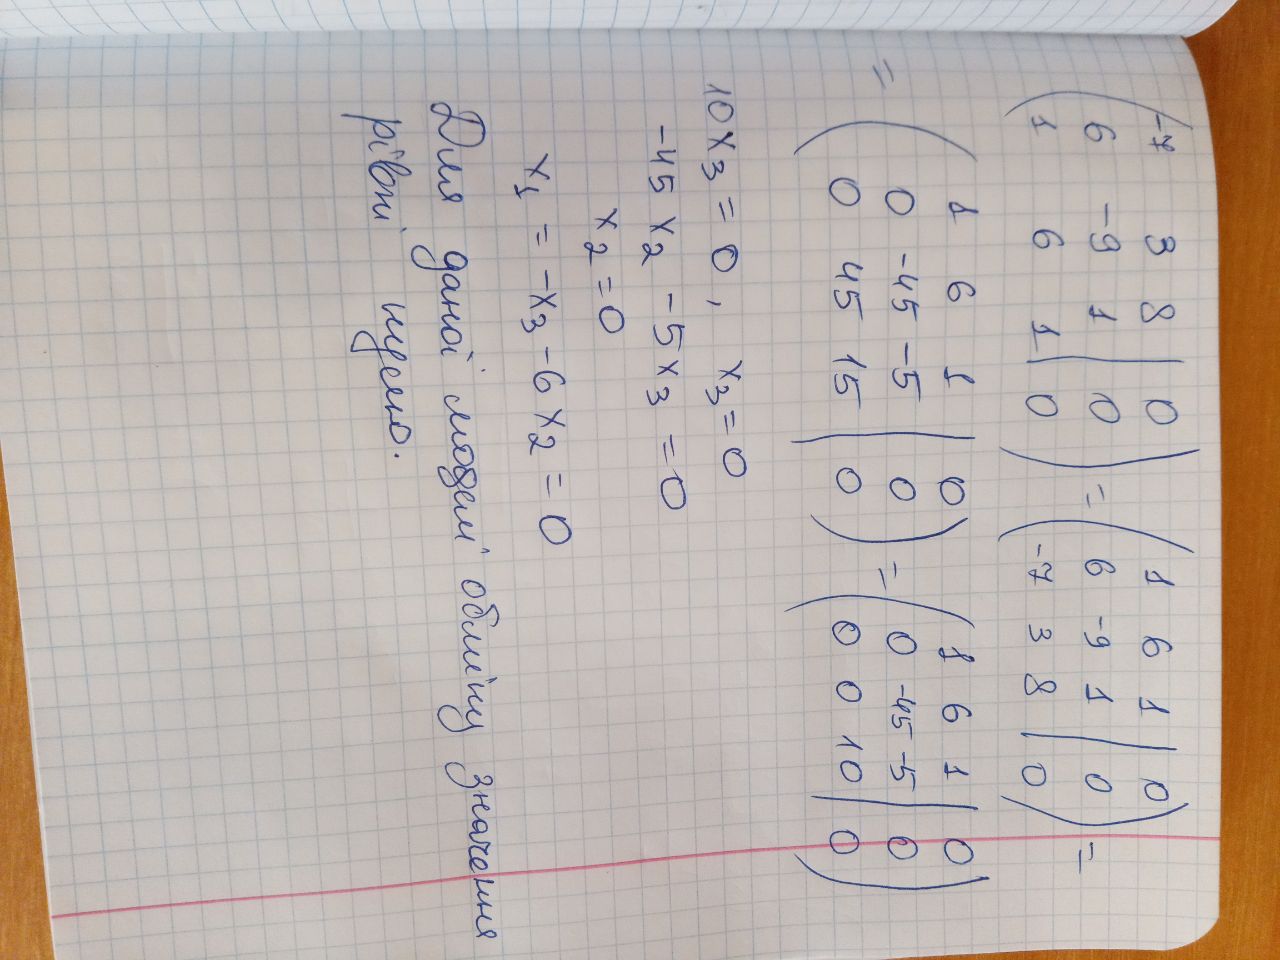 -7 3 8 | 0 1 6 1 | 0
6 -9 1 | 0 = 6 -9 1 | 0 =
1 6 1 | 0 -7 3 8 | 0
1 6 1 | 0 1 6 1 | 0
= 0 -45 -5 | 0 = 0 -45 -5 | 0
0 45 15 | 0 0 0 10 | 0
10x₃ = 0 , x₃ = 0
-45 x₂ - 5x₃ = 0
x₂ = 0
x₁ = -x₃ - 6x₂ = 0
Для даної моделі обміну значення
рівні нулю.